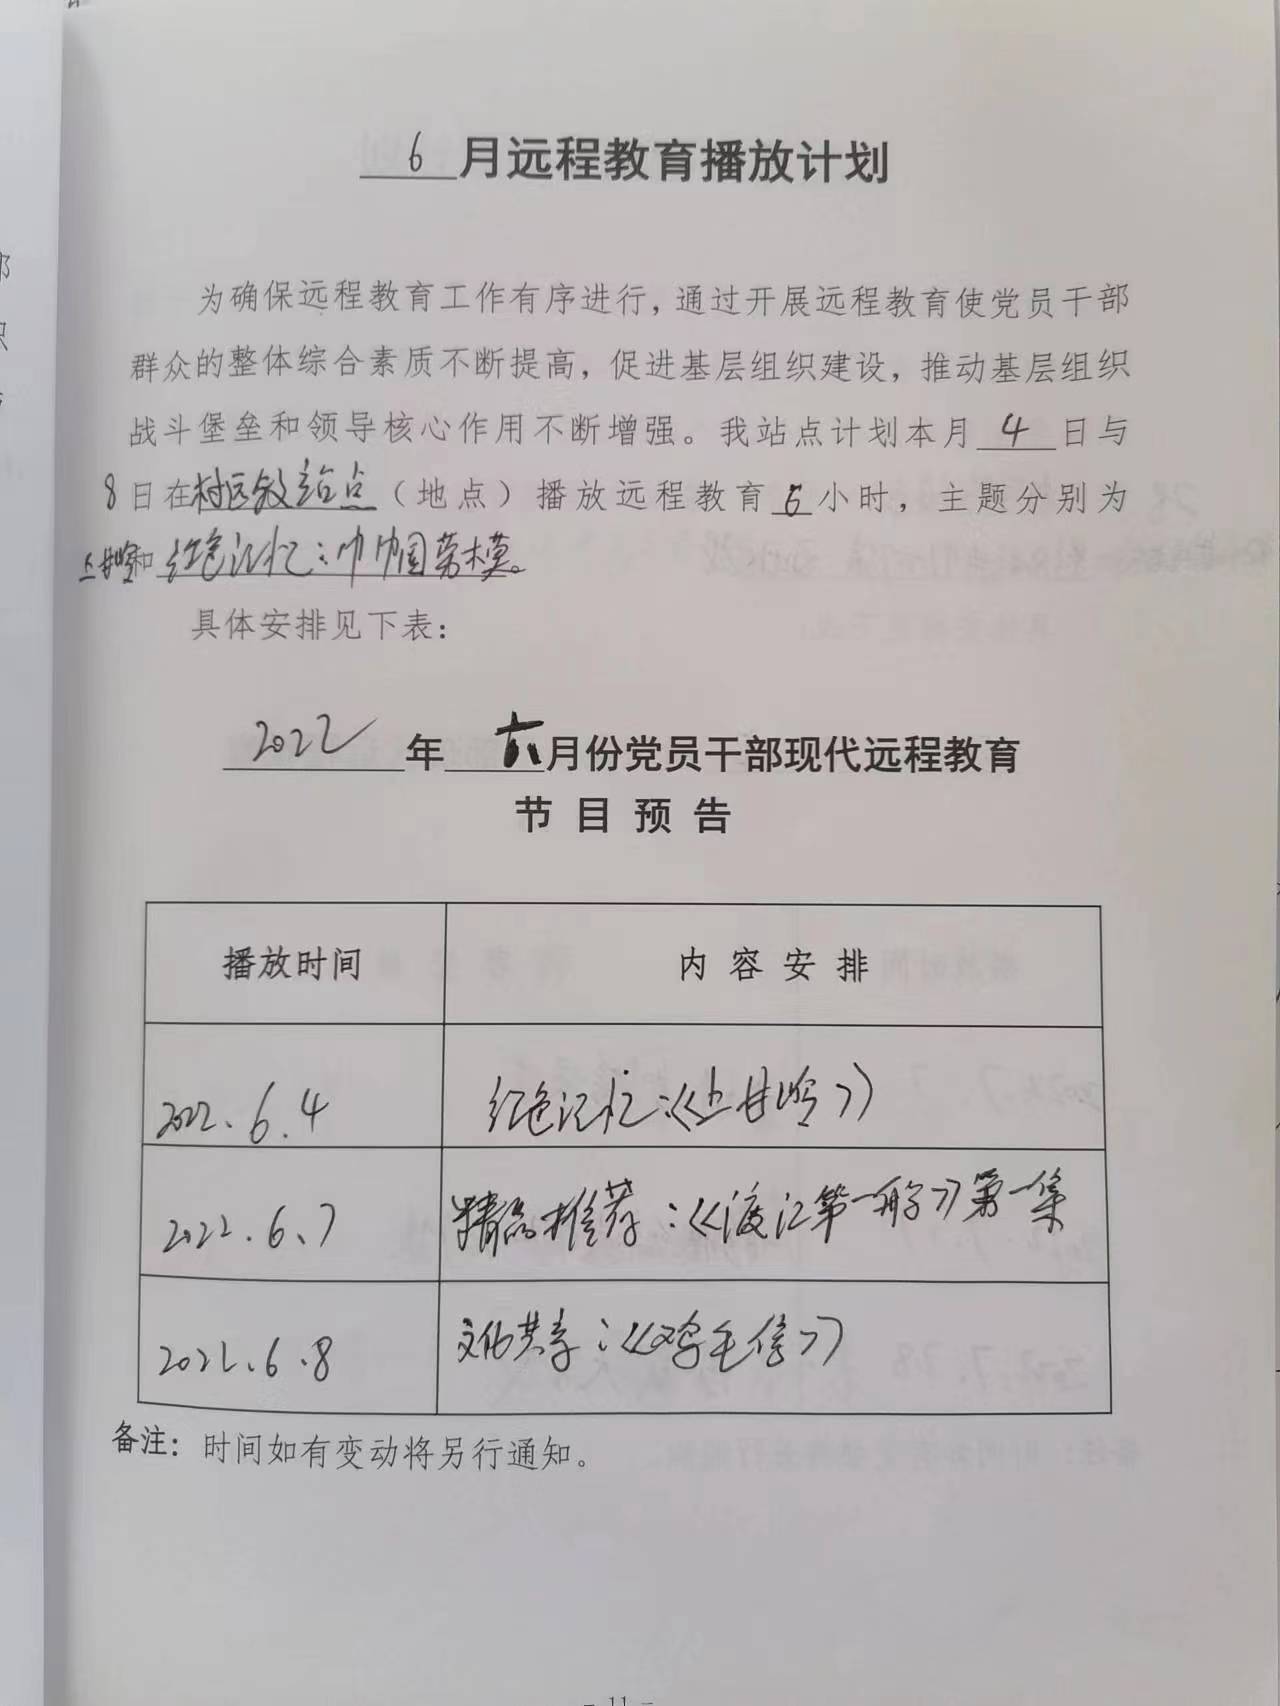 6月远程教育播放计划
为确保远程教育工作有序进行，通过开展远程教育使党员干部
群众的整体综合素质不断提高，促进基层组织建设，推动基层组织
战斗堡垒和领导核心作用不断增强。我站点计划本月4日与
8日在村远教站点（地点）播放远程教育6小时，主题分别为
上甘岭和 红色记忆：巾帼劳模。
具体安排见下表：
2022年六月份党员干部现代远程教育
节目预告
播放时间 内容安排
2022.6.4 红色记忆：《上甘岭》
2022.6.7 精品推荐：《渡江第一船》第一集
2022.6.8 文化共享：《鸡毛信》
备注：时间如有变动将另行通知。
- 11 -